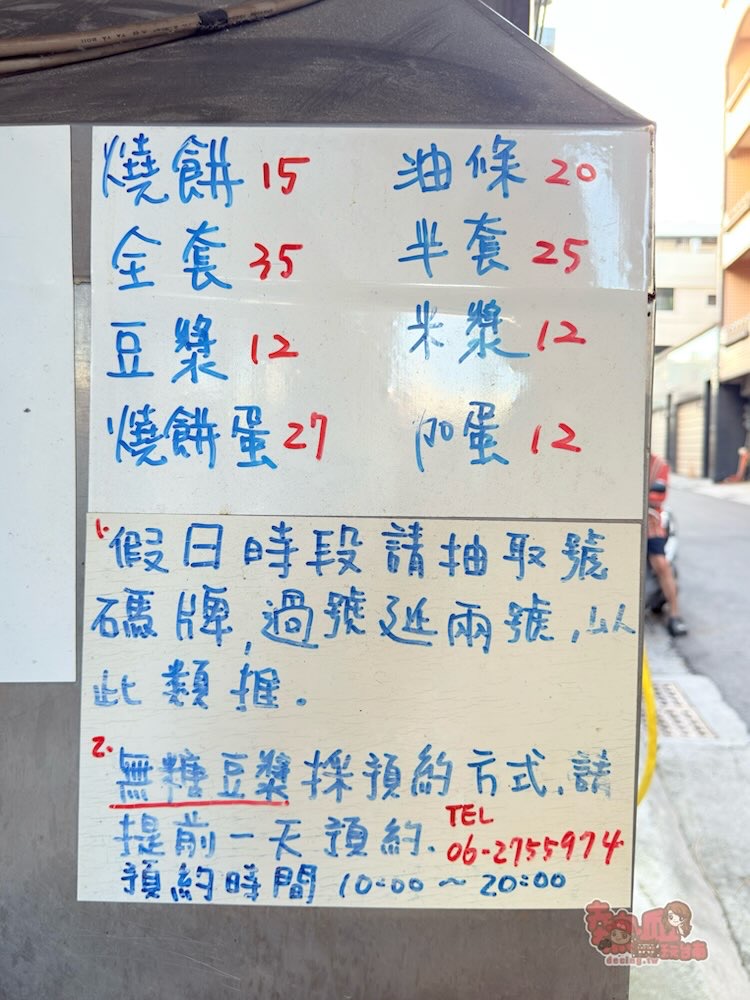 燒餅 15 油條 20
全套 35 半套 25
豆漿 12 米漿 12
燒餅蛋 27 加蛋 12
1. 假日時段請抽取號
碼牌,過號延兩號,以
此類推.
2. 無糖豆漿採預約方式,請
提前一天預約. TEL
06-2755974
預約時間 10:00~20:00
decing.tw